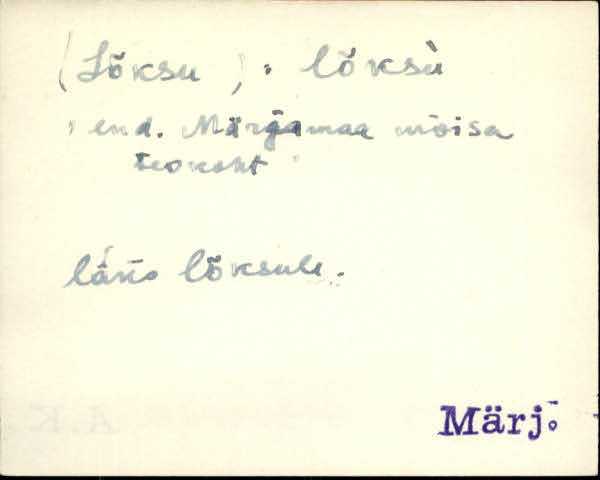 (Lõksu) : lõksù
' end. Märjamaa mõisa
teokoht '
lõksule.
Märj.